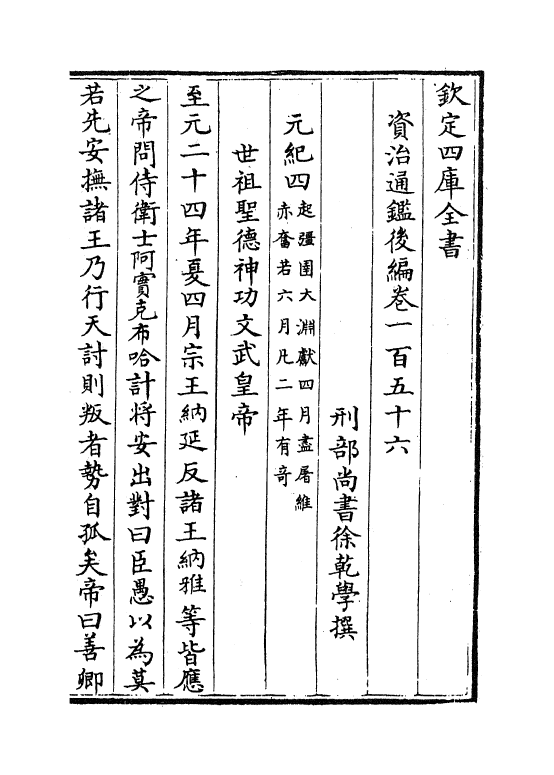 欽定四庫全書
資治通鑑後編卷一百五十六
刑部尚書徐乾學撰
元紀四起彊圉大淵獻四月盡屠維赤奮若六月凡二年有奇
世祖聖德神功文武皇帝
至元二十四年夏四月宗王納延反諸王納雅等皆應
之帝問侍衛士阿實克布哈計將安出對曰臣愚以為莫
若先安撫諸王乃行天討則叛者勢自孤矣帝曰善卿